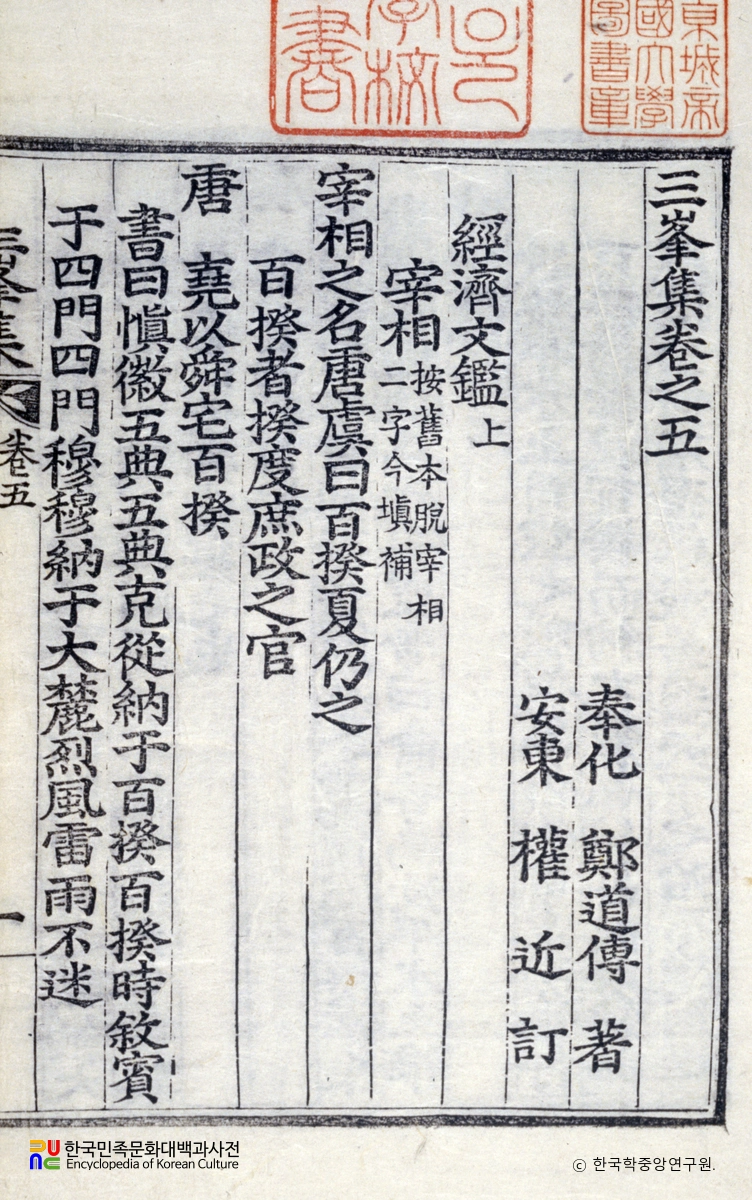 三峯集卷之五
奉化 鄭道傳 著
安東 權近 訂
經濟文鑑上
宰相 按舊本脫宰相
二字今塡補
宰相之名唐虞曰百揆夏仍之
百揆者揆度庶政之官
唐 堯以舜宅百揆
書曰愼徽五典五典克從納于百揆百揆時敘賓
于四門四門穆穆納于大麓烈風雷雨不迷
三峯集 卷五 一
京城帝
國大學
圖書章
한국민족문화대백과사전
Encyclopedia of Korean Culture
© 한국학중앙연구원.